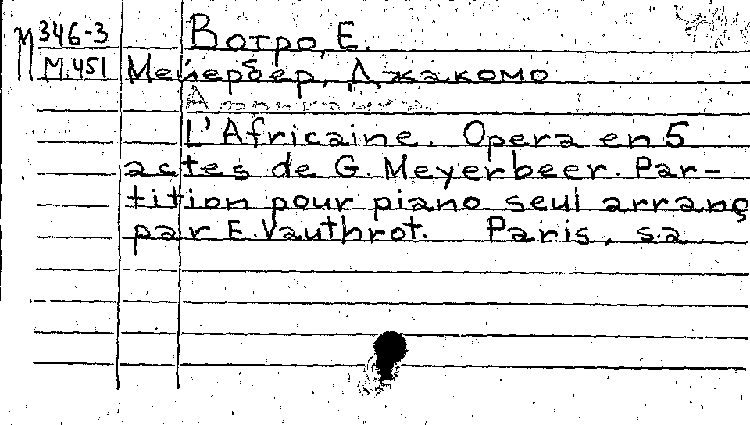 М 346-3 Вотро, Е.
М.451 Мейербер, Джакомо
L'Africaine. Opera en 5
actes de G. Meyerbeer. Par-
tition pour piano seul arrang
par E. Vauthrot. Paris, s.a